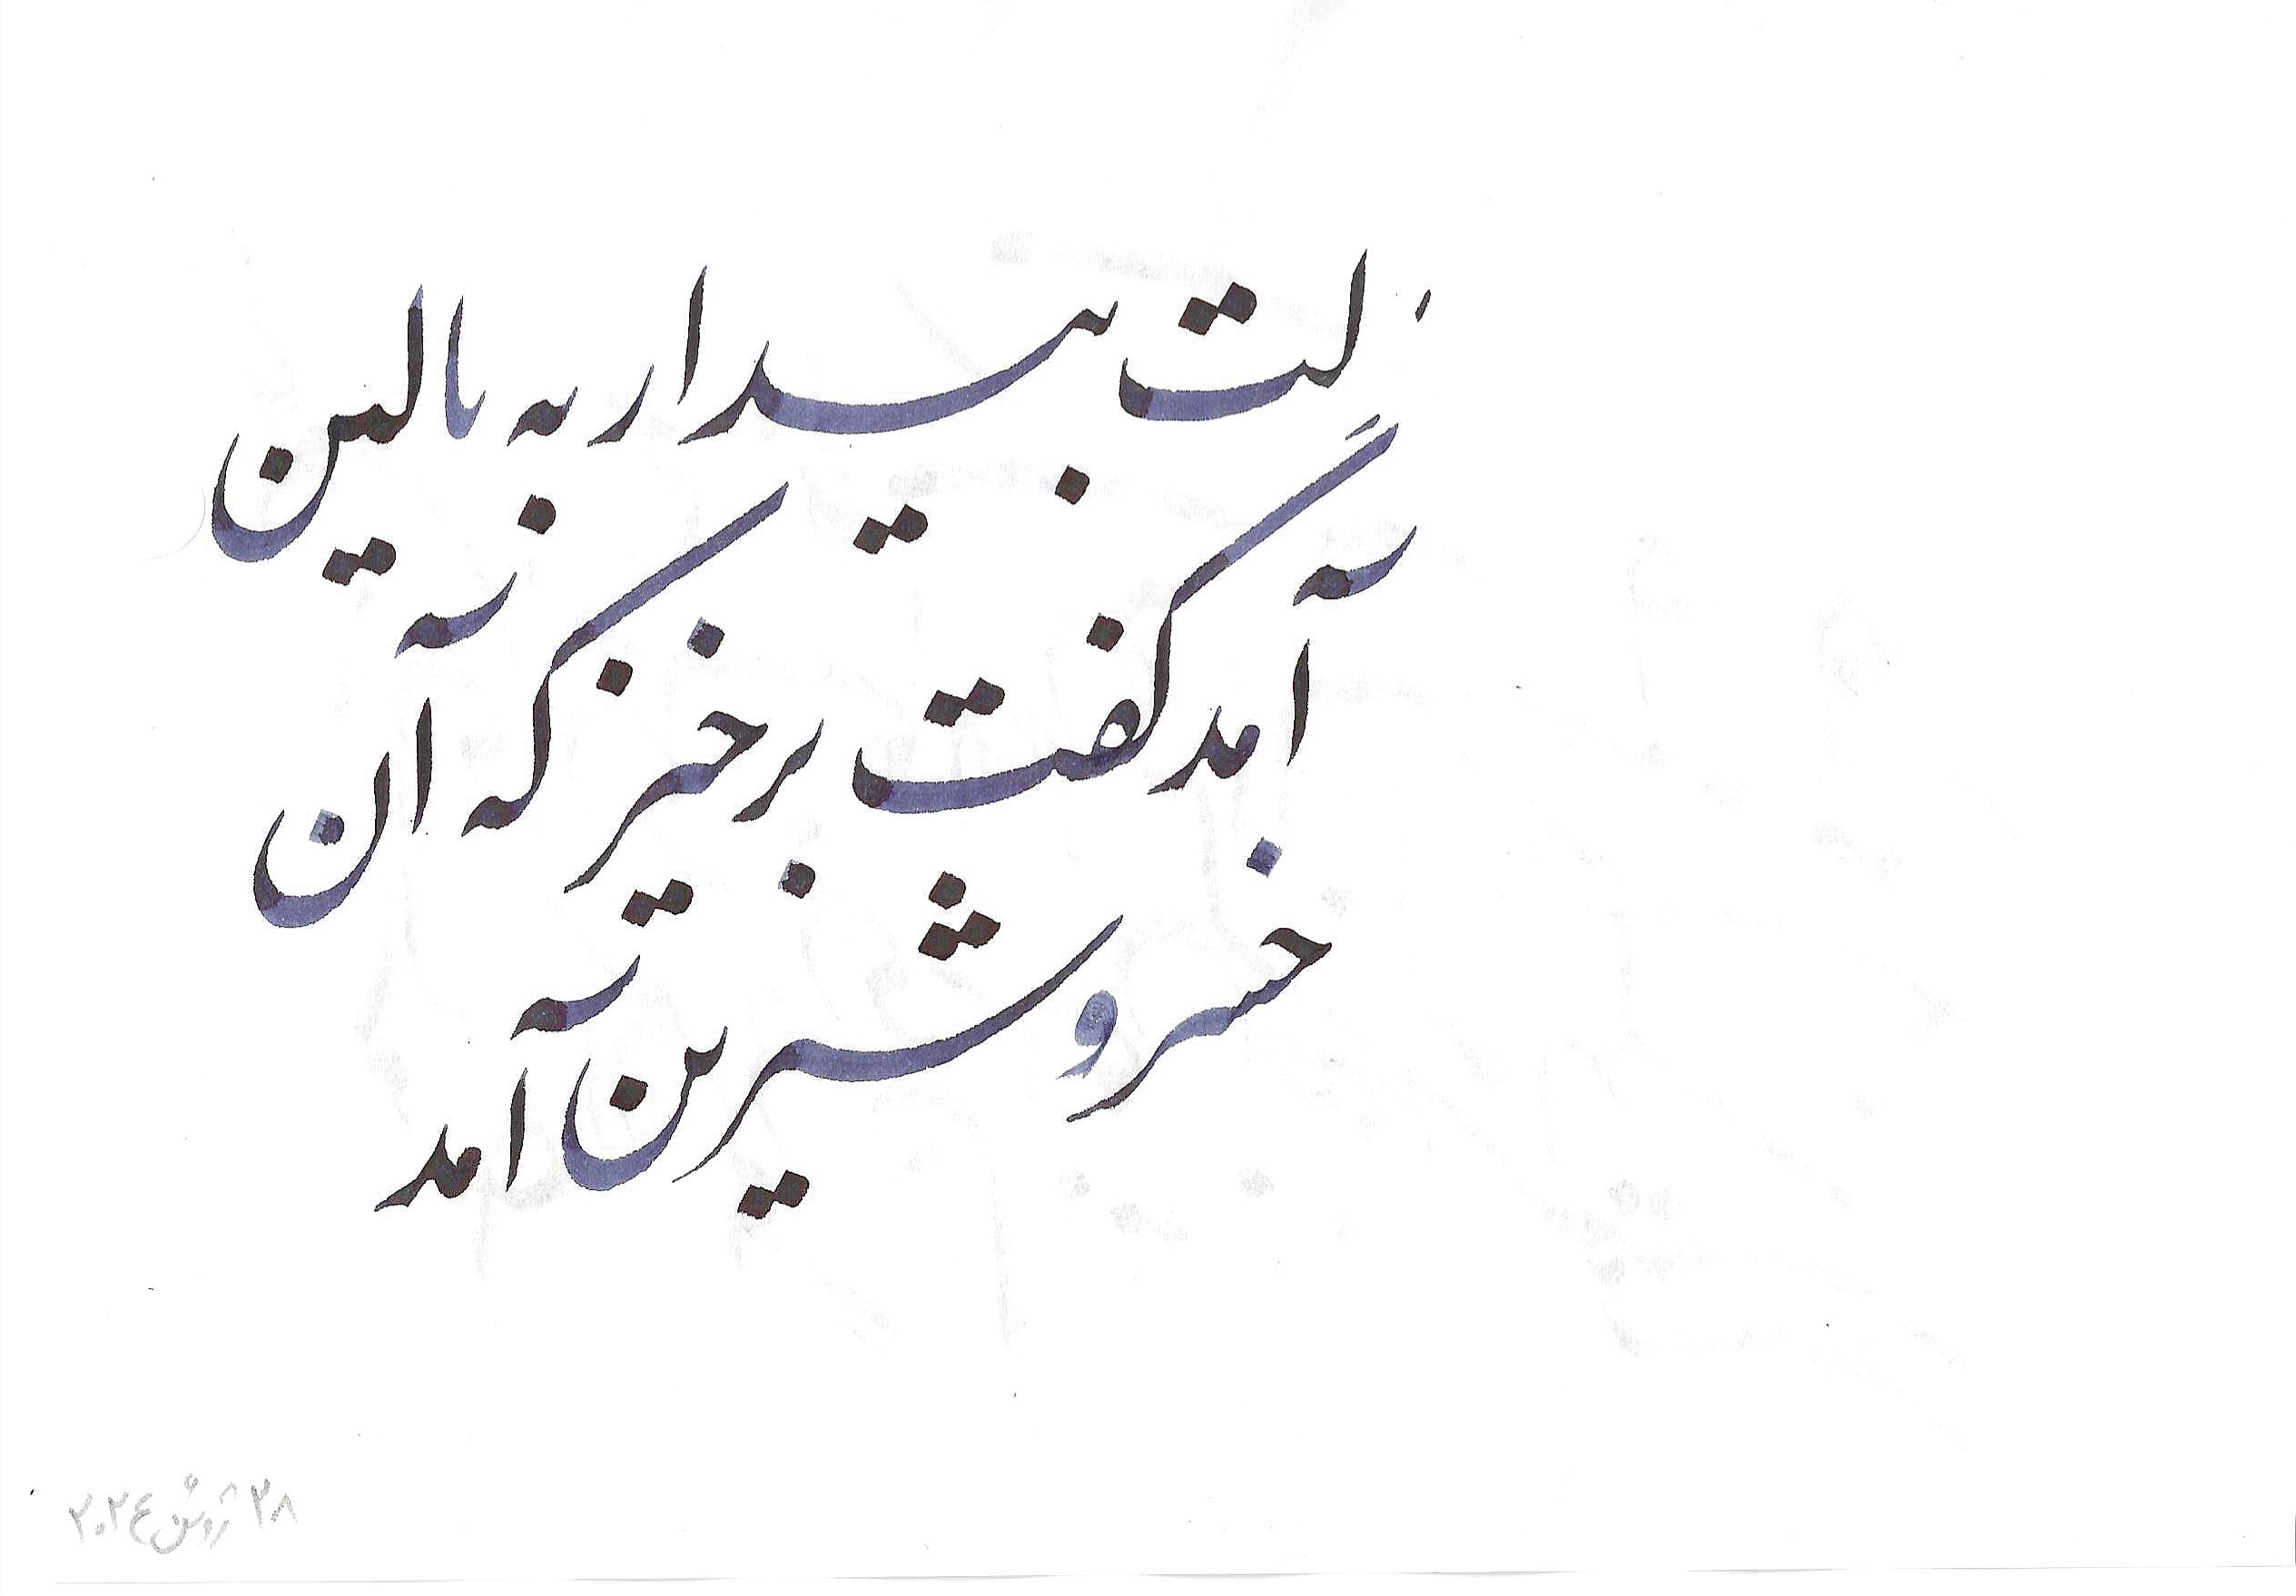 لت بیدار به بالین
آمد گفت برخیز که آن
خسرو شیرین آمد
۲۸ ژوئن ۲۰۲٤